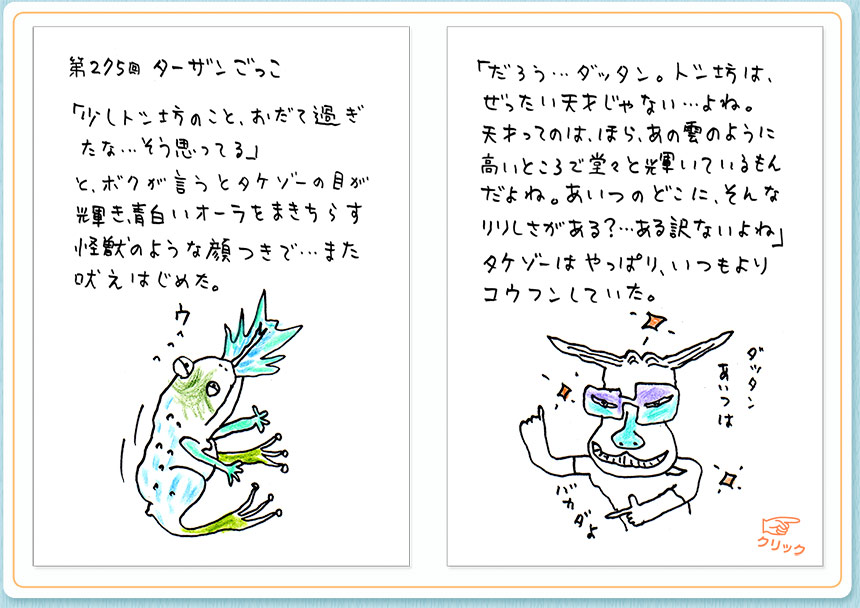 第275回 ターザンごっこ
「少しトン坊のこと、おだて過ぎ
たな…そう思ってる」
と、ボクが言うとタケゾーの目が
輝き、青白いオーラをまきちらす
怪獣のような顔つきで…また
吠えはじめた。
ウ
「だろう…ダッタン。トン坊は、
ぜったい天才じゃない…よね。
天才ってのは、ほら、あの雲のように
高いところで堂々と輝いているもん
だよね。あいつのどこに、そんな
りりしさがある?…ある訳ないよね」
タケゾーはやっぱり、いつもより
コウフンしていた。
ダッタン
あいつは
バカダよ
クリック